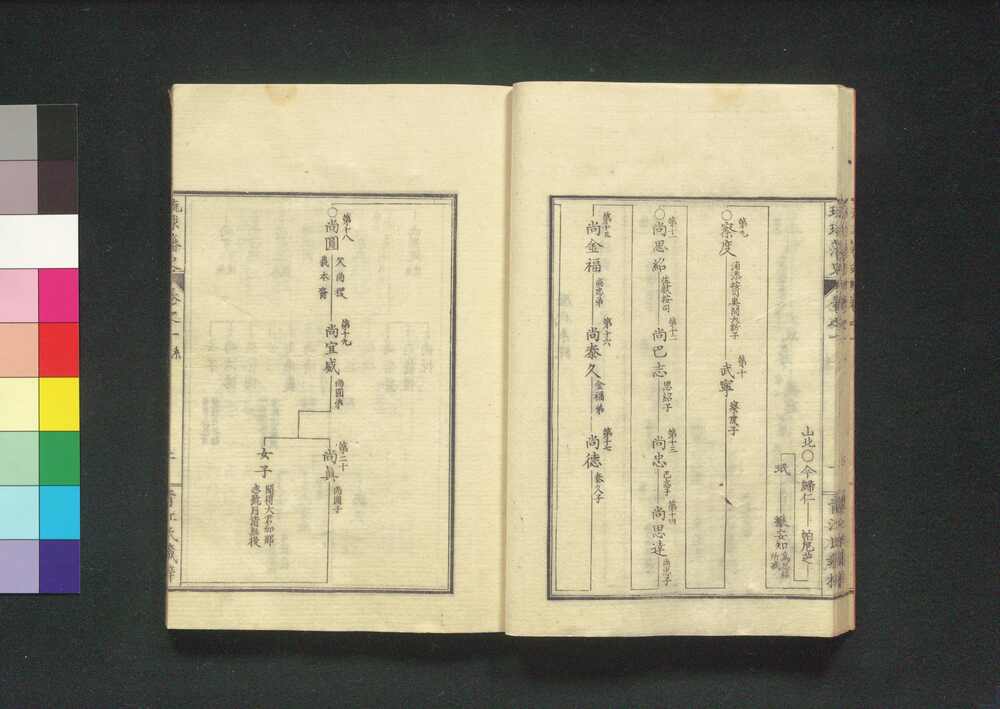 山北〇今歸仁 帕尼芝
珉
攀安知
第九
〇察度 浦添按司奧間大親子
第十
武寧 察度子
第十一
〇尚思紹 佐敷按司
第十二
尚巴志 思紹子
第十三
尚忠 巴志子
第十四
尚思達 尚忠子
第十五
尚金福 尚忠弟
第十六
尚泰久 金福弟
第十七
尚德 泰久子
第十八
〇尚圓 父尚稷
義本裔
第十九
尚宣威 尚圓弟
第二十
尚眞 尚圓子
女子 聞得大君加那
志號月清無後
琉球藩史 卷之一